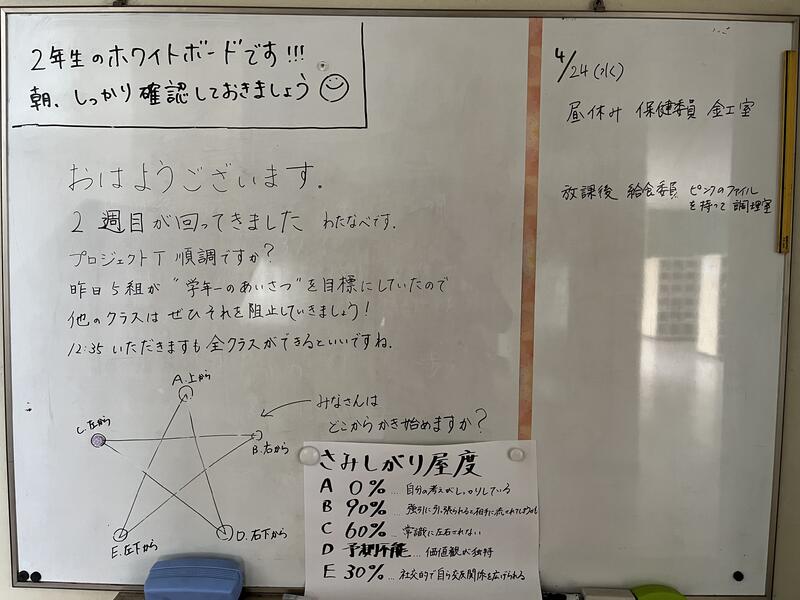 2年生のホワイトボードです!!!
朝、しっかり確認しておきましょう
おはようございます.
2週目が回ってきました わたなべです.
プロジェクトT 順調ですか?
昨日5組が“学年一のあいさつ”を目標にしていたので
他のクラスは ぜひそれを阻止していきましょう!
12:35 いただきますも全クラスができるといいですね.
A.上から
C.左から
B.右から
E.左下から
D.右下から
みなさんは
どこから かき始めますか?
さみしがり屋度
A 0%…自分の考えがしっかりしている
B 90%…強引に引っ張られると相手に流されてしまうかも
C 60%…常識に左右されない
D 予測不能…価値観が独特
E 30%…社交的で自ら交友関係を広げられる
4/24(水)
昼休み 保健委員 金工室
放課後 給食委員 ピンクのファイル
を持って 調理室